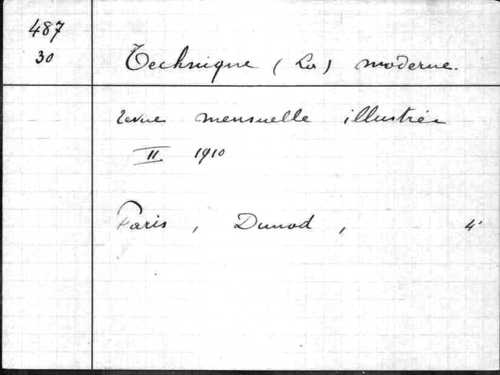 487
30
Technique (La) moderne.
revue mensuelle illustrée
II. 1910
Paris, Dunod, 4°